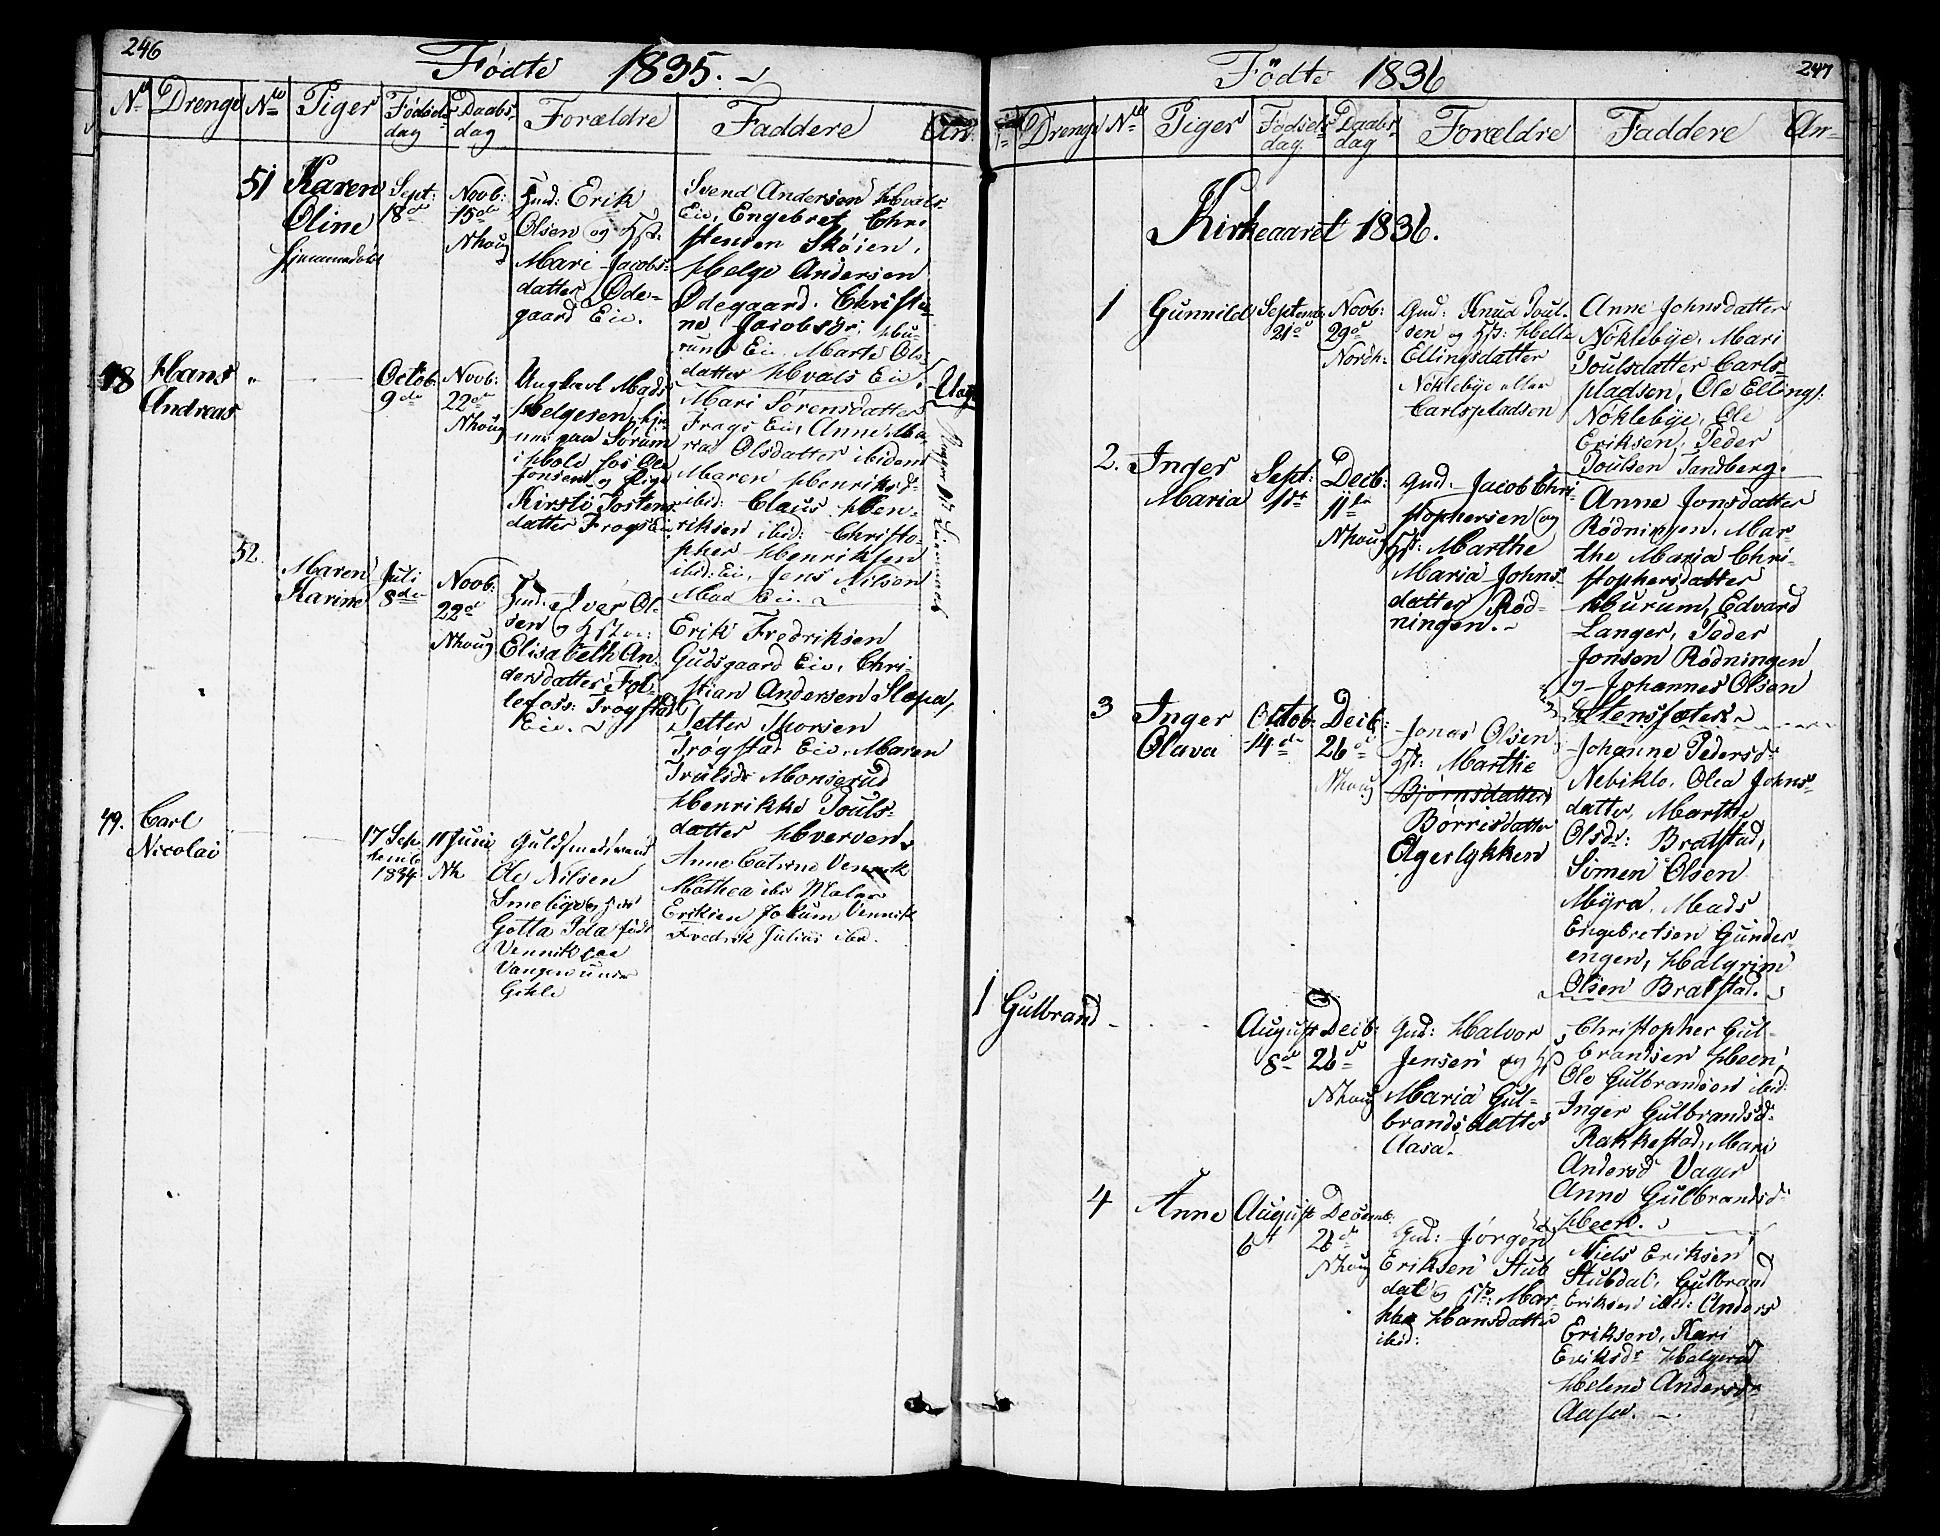 246
Födte 1835.
No Drenge No Piger Födsels dag Daabs dag Forældre Faddere An.
51 Karen
Oline
hjemmedöbt
Sept:
18de
Novb:
15de
Nhoug
Gmd: Erik
Olsen og Hst:
Mari Jacobs-
datter Öde-
gaard Eie.
Svend Andersen Hvals
Eie, Engebret Chri
stensen Sköien,
Helge Andersen
Ödegaard. Christi-
ne Jacobsdr: Hu-
rum Eie. Marte Ols:
datter Hvals Eie.
48 Hans
Andreas
Octob:
9de
Novb:
22de
Nhoug
Ungkarl Mads
Helgesen, tje-
ner paa Sörum
i Hole hos Ole
Jonsen og Pige
Kirsti Tostens
datter Frogs Ei.
Mari Sörensdatter
Frogs Eie, Anne Ma
ria Olsdatter ibidem
Maren Henriksd-
ibid: Claus Hen-
riksen ibid: Christo-
pher Henriksen
ibid: Eie, Jens Nilsen
Moe Eie.
Uægte
52.
Maren
Karine
Juli
8de
Novb:
22de
Nhoug
Gmd: Iver Ol-
sen og Hst
Elisabeth An-
dersdatter Fol-
lefoss: Trögstad
Eie.
Erik Fredriksen
Gudsgaard Eie, Chri-
stian Andersen Slepa,
Petter Morsen
Trögstad Eie, Maren
Trulsdr Monserud
Henrikke Pouls-
datter Hverven.
49. Carl
Nicolai
17 Sep-
tembr
1834
11 Juni
Nh
Guldsmedsvend
Ole Nilsen
Smebye og
Gotta Ida född
Vennik paa
Vangen under
Gihle
Anne Catrine Vennik
Mathea ibd Maler
Eriksen Jokum Vennik
Fredrik Julius ibd.
247
Födte 1836
Drenge No Piger Födsels dag. Daabs dag Forældre Faddere An-
Kirkeaaret 1836.
1 Gunnild
Septemb:
21de
Novb:
29de
Nordh:
Gmd: Knud Poul-
sen og Hst: Helle
Ellingsdatter
Nöklebye eller
Carlspladsen
Anne Johnsdatter
Nöklebye, Mari
Poulsdatter Carls-
pladsen, Ole Ellings:
Nöklebye, Ole
Eriksen, Peder
Poulsen Tandberg.
2. Inger
Maria
Sept:
1st
Decb:
11te
Nhoug
Gmd. Jacob Chri-
stophersen og
Hst: Marthe
Maria Johns-
datter Röd-
ningen.
Anne Jonsdatter
Rödningen, Mar-
the Maria Chri-
stophersdatter
Hurum, Edvard
Langer, Peder
Jonsen Rödningen
og Johannes Olsen
Stensfæteie
3 Inger
Olava
Octob:
14de
Decb:
26de
Nhoug
Jonas Olsen
Hst: Marthe
Björnsdatter
Börresdatter
Agerlykken
Johanne Pedersd-
Nebiklo, Olea Johns-
datter, Marthe
Olsdr: Bratstad,
Simen Olsen
Myra, Mads
Engebretsen Gunder-
engen, Halgrim
Olsen Bratstad.
1 Gulbrand
August
8de
Decb:
26de
Nhoug
Gmd: Halvor
Jensen og Hst
Maria Gul-
brandsdatter
Aasa.
Christopher Gul-
brandsen Heen,
Ole Gulbrandsen ibid:
Inger Gulbrandsd-
Rakkestad, Mari
Andersd Vager
Anne Gulbrandsd-
Heen.
4 Anne
August
6t
Decemb:
26de
Nhoug
Gmd: Jörgen
Eriksen Stub
dal og Hst: Mar-
the Hansdatter
ibid:
Niels Eriksen
Stubdal, Gulbrand
Eriksen ibid: Anders
Eriksen, Kari
Eriksdr Halgrud
Helene Andersdr
Aasa.